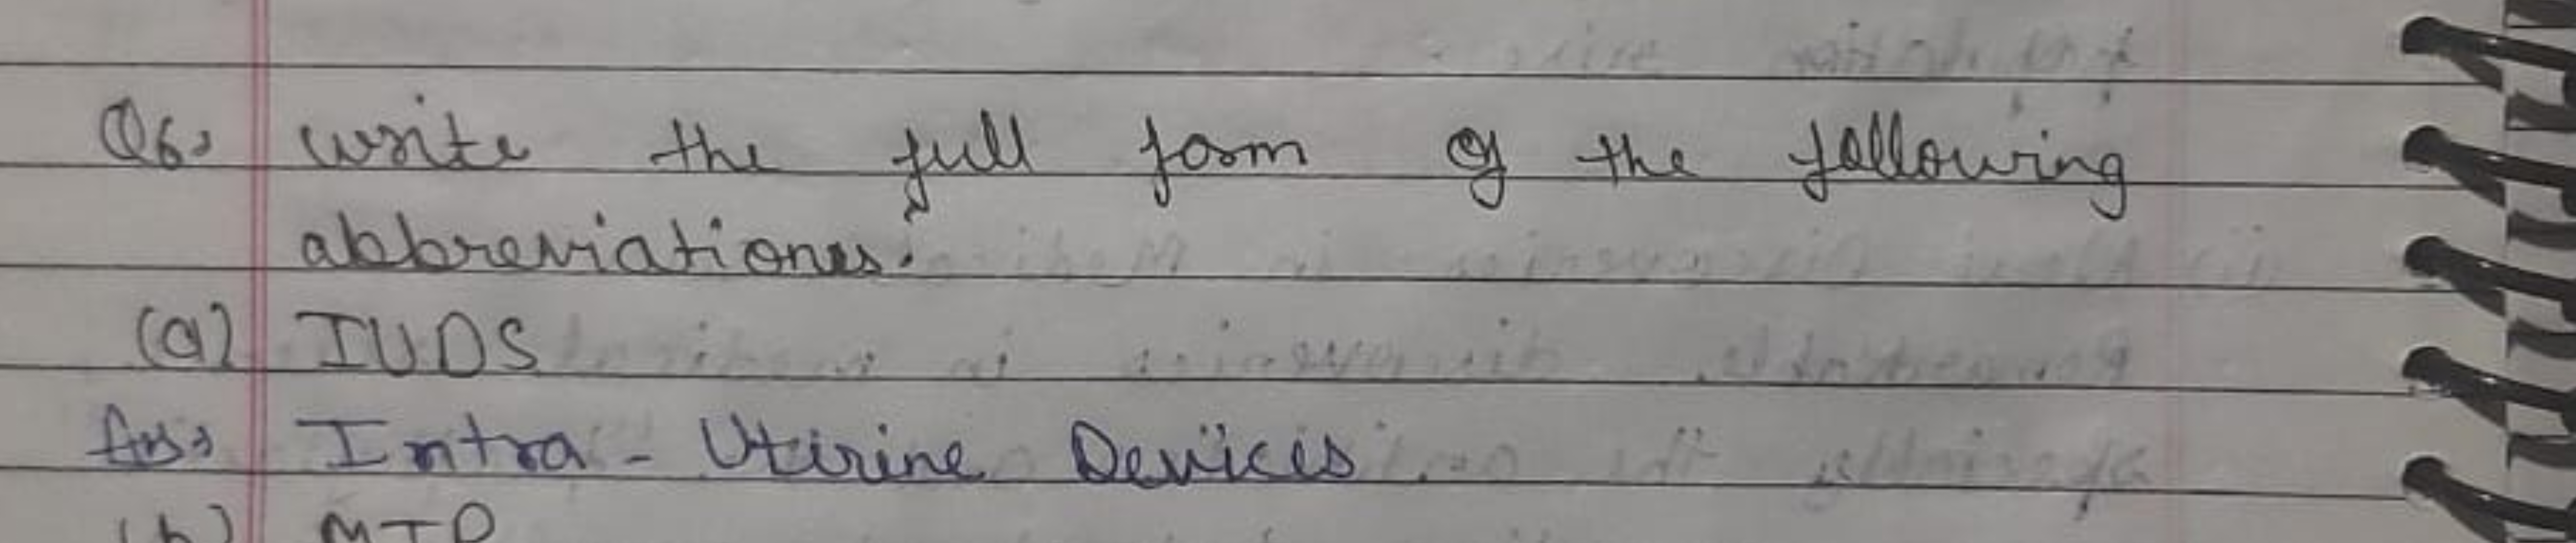 Q6, write the full form of the following
abbreviations.
(a) IUDS
Ans, Intra - Uterine Devices.
(b) MTP